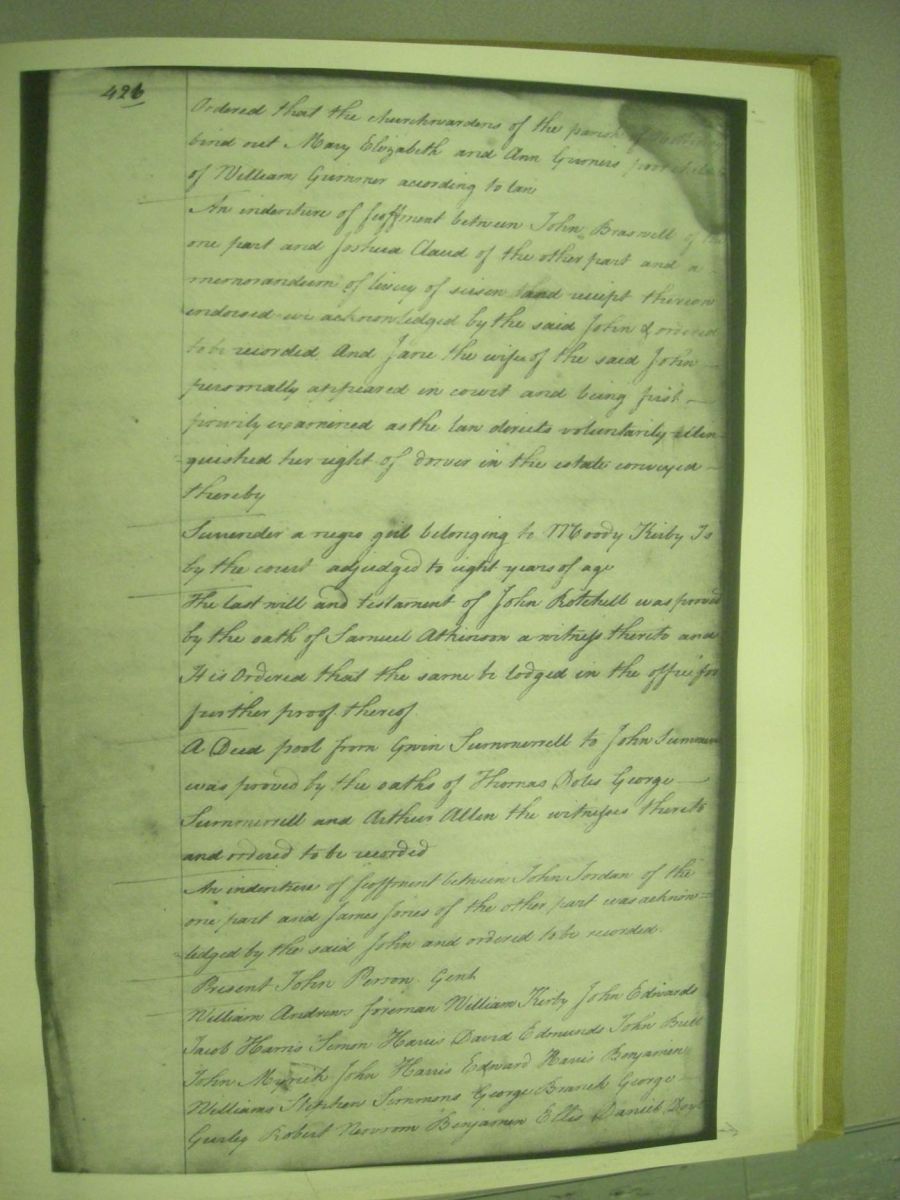 426
Ordered that the churchwardens of the parish of
bind out Mary Elizabeth and Ann Gurners poor
of William Gurnner acording to law
An indenture of feoffment between John Braswell of the
one part and Joshua Claud of the other part and a
memorandum of livery of seisen and reciept thereon
endorsed were acknowledged by the said John & ordered
to be recorded And Jane the wife of the said John
personally appeared in court and being first
privily examined as the law directs voluntarily relin
quished her right of dower in the estate conveyed
thereby
Surrender a negro girl belonging to Moody Kirby Is
by the court adjudged to eight years of age
The last will and testament of John Rotchell was proved
by the oath of Samuel Atkinson a witness thereto and
It is Ordered that the same be lodged in the office for
further proof thereof
A Deed pool from Gwin Summerrell to John
was proved by the oaths of Thomas Doles George
Summerrell and Arthur Allen the witnesses thereto
and ordered to be recorded
An indenture of feoffment between John Jordan of the
one part and James Jones of the other part was acknow=
=ledged by the said John and ordered to be recorded.
Present John Person Gent
William Andrews foreman William Kirby John Edwards
Jacob Harris Simon Harris David Edmunds John Britt
John Myrick John Harris Edward Harris Benjamin
Williams Stephen Simmons George Branch George
Gurley Robert Newsom Benjamin Ellis Daniel